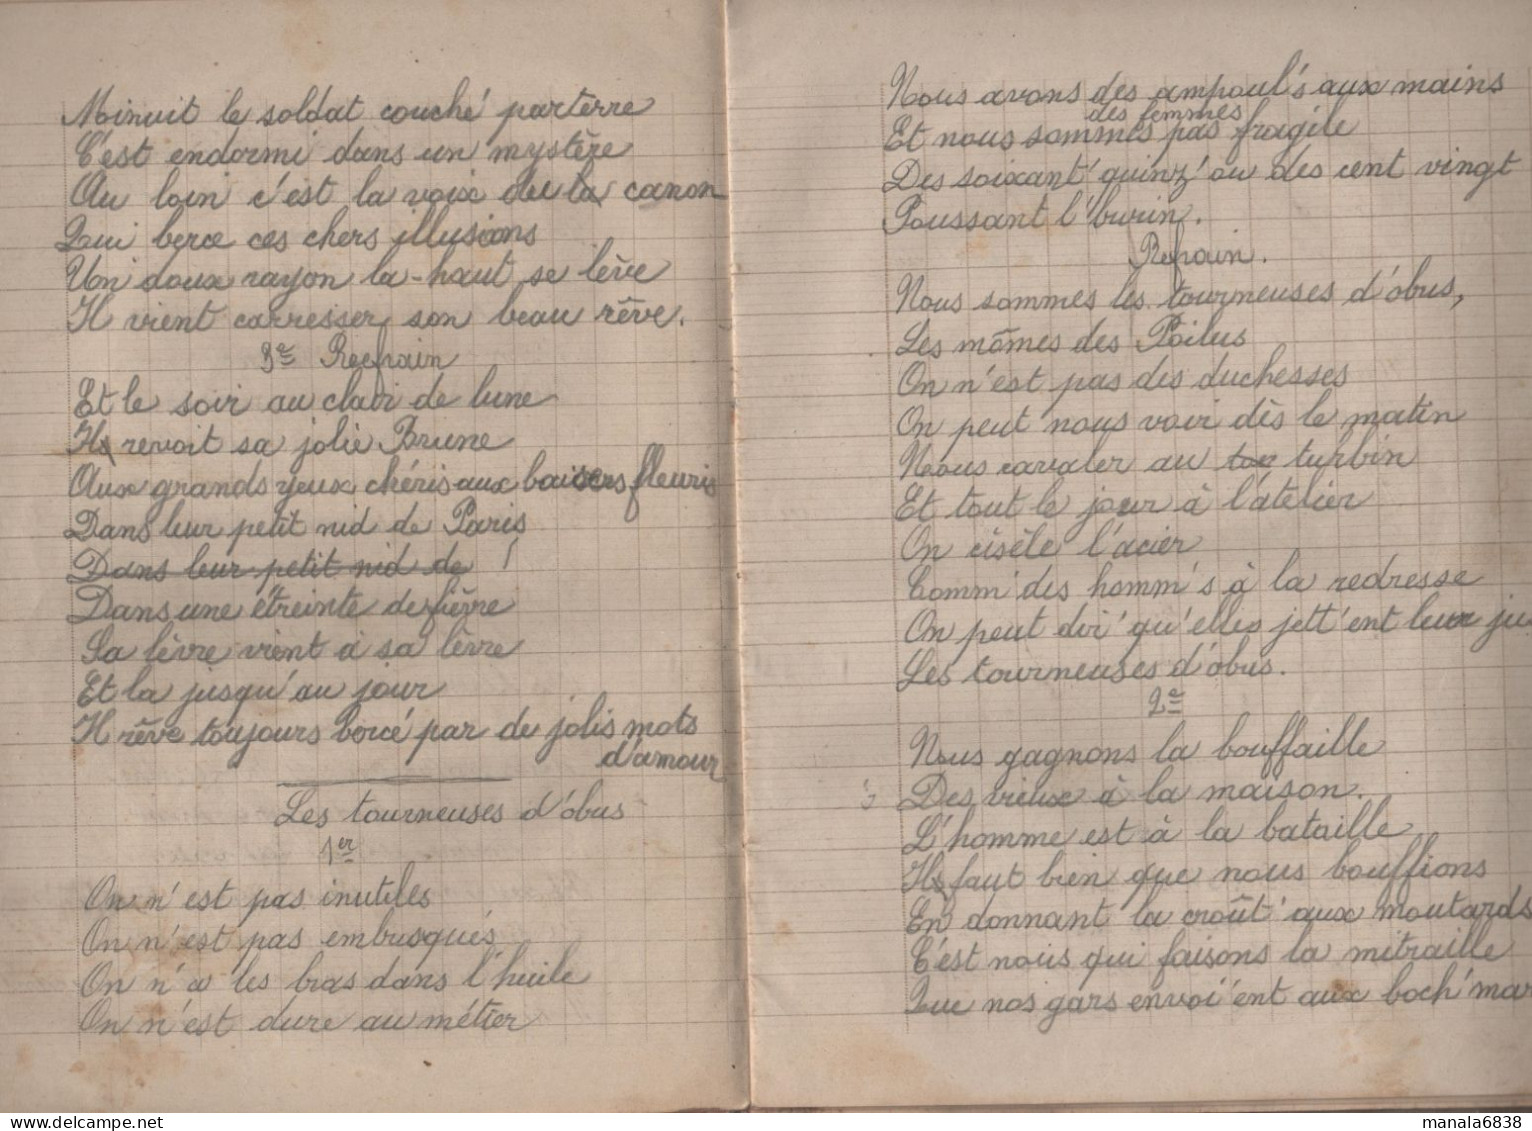 Minuit le soldat couché parterre
C'est endormi dans un mystère
Au loin c'est la voix du la canon
Qui berce ces chers illusions
Un doux rayon la-haut se lève
Il vient carresser son beau rêve.
3e Reefrain
Et le soir au clair de lune
Ils revoit sa jolie Brune
Aux grands yeux chéris aux baisers fleuris
Dans leur petit nid de Paris
Dans leur petit nid de
Dans une étreinte de fièvre
Sa lèvre vient à sa lèvre
Et la jusqu'au jour
Il rêve toujours bercé par de jolis mots
d'amour
Les tourneuses d'obus
1er
On n'est pas inutiles
On n'est pas embusqués
On n'a les bras dans l'huile
On n'est dure au métier
Nous avons des ampoul's aux mains
des femmes
Et nous sommes pas fragile
Des soixant'quinz'ou des cent vingt
Poussant l'burin.
Refrain.
Nous sommes les tourneuses d'obus,
Les mômes des Poilus
On n'est pas des duchesses
On peut nous voir dès le matin
Nous cavaler au turbin
Et tout le jour à l'atelier
On cisèle l'acier
Comm'des homm's à la redresse
On peut dir'qu'elles jett'ent leur ju
Les tourneuses d'obus.
2e
Nous gagnons la bouffaille
Des vieux à la maison.
L'homme est à la bataille
Ils faut bien que nous bouffions
En donnant la croût'aux moutards
C'est nous qui faisons la mitraille
Que nos gars envoi'ent aux boch'mar
manala6838